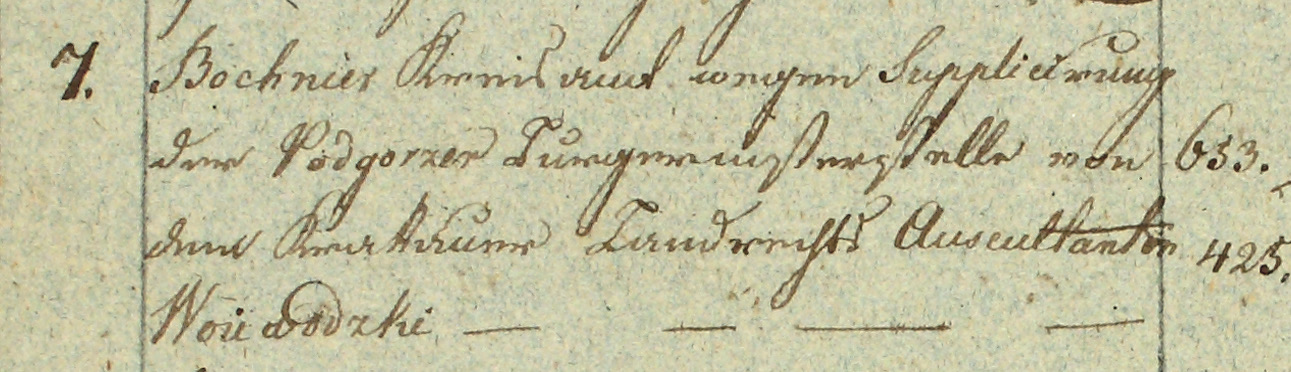 7. Bochnier Kreisamt wegen Supplierung
der Podgorzer Burgermeisterstelle von 653.
dem Krakauer Landrechts Auscultanten 425.
Woiwodzki — — — —